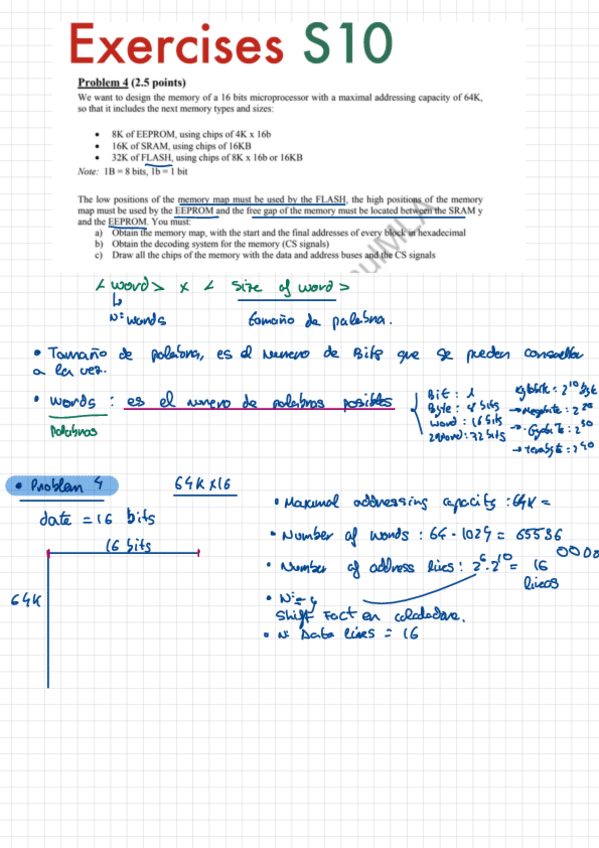 Exercises S10
Problem 4 (2.5 points)
We want to design the memory of a 16 bits microprocessor with a maximal addressing capacity of 64K,
so that it includes the next memory types and sizes:
• 8K of EEPROM, using chips of 4K x 16b
• 16K of SRAM, using chips of 16KB
• 32K of FLASH, using chips of 8K x 16b or 16KB
Note: 1B = 8 bits, 1b = 1 bit
The low positions of the memory map must be used by the FLASH, the high positions of the memory
map must be used by the EEPROM and the free gap of the memory must be located between the SRAM y
and the EEPROM. You must:
a) Obtain the memory map, with the start and the final addresses of every block in hexadecimal
b) Obtain the decoding system for the memory (CS signals)
c) Draw all the chips of the memory with the data and address buses and the CS signals
< word > x < size of word >
Nº words tamaño de palabra.
• Tamaño de palabra, es el numero de Bits que se pueden consultar
a la vez.
• words : es el numero de palabras posibles
palabras
Bit : 1
Byte : 8 bits
word : 16 bits
: 32 bits
: 2^10 byt
→ Megabite : 2^20
→ Gybite : 2^30
→ terabyte : 2^40
• Problem 4 64K x 16
date = 16 bits
16 bits
64K
• Maximal addressing capacity : 64K =
• Number of words : 64 · 1024 = 65536
• Number of address lines : 2^6 · 2^10 = 16
lineas
• Nº = y
Shift Fact en calculadora.
• Nº Data lines = 16